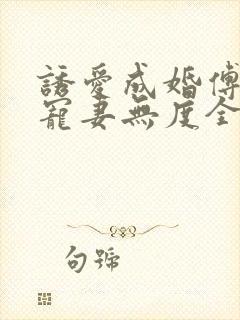 誘愛成婚傅
寵妻無度全
句號